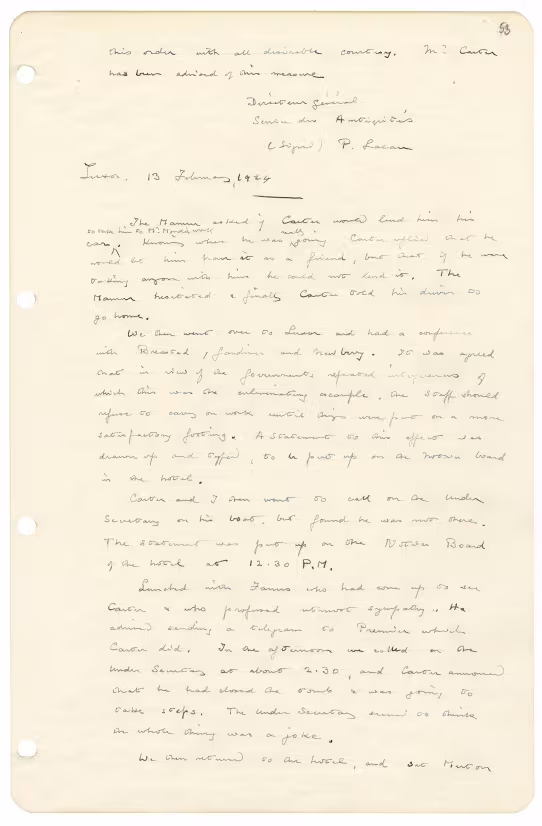 53
this order with all desirable courtesy. Mr. Carter
has been advised of this measure
Directeur général
Service des Antiquités
(Signed) P. Lacau
Luxor. 13 February, 1924
The Mamur asked if Carter would lend him his
to take him to Mr. Monds work
car. Knowing where he was really going Carter replied that he
would let him have it as a friend, but that if he were
taking anyone with him he could not lend it. The
Mamur hesitated & finally Carter told his driver to
go home.
We then went over to Luxor and had a conference
with Breasted, Gardiner and Newberry. It was agreed
that in view of the Government's repeated
which this was the culminating example, the staff should
refuse to carry on work until things were put on a more
satisfactory footing. A statement to this effect was
drawn up and typed, to be put up on the notice board
in the hotel.
Carter and I then went to call on the Under
Secretary on his boat, but found he was not there.
The statement was put up on the Notice Board
of the hotel at 12.30 P.M.
Lunched with who had come up to see
Carter & who professed utmost sympathy. He
advised sending a telegram to Premier which
Carter did. In the afternoon we called on the
Under Secretary at about 2.30, and Carter announced
that he had closed the tomb & was going to
take steps. The Under Secretary seemed to think
the whole thing was a joke.
We then returned to the hotel, and sat Merton